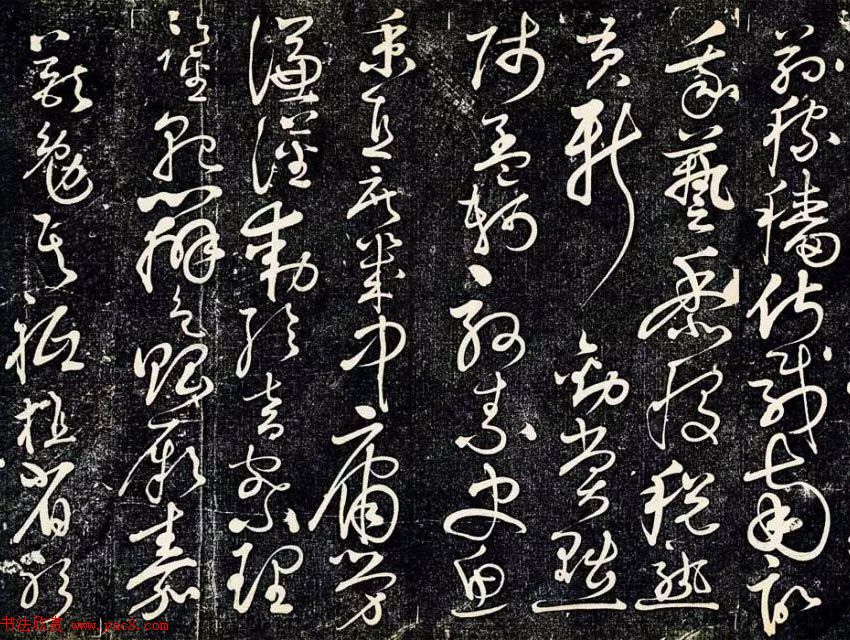 茲稼穡俶載南畝
我藝黍稷稅熟
貢新勸賞黜
陟孟軻敦素史魚
秉直庶幾中庸勞
謙謹敕聆音察理
鑒貌辨色貽厥嘉
猷勉其祗植省躬
书法欣赏 www.yac8.com